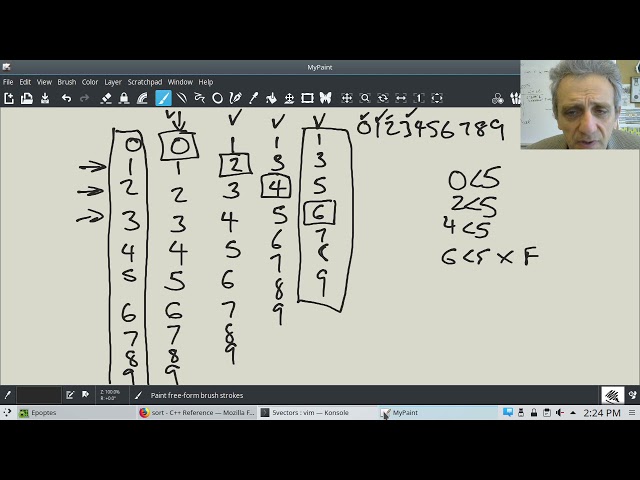 MyPaint
File Edit View Brush Color Layer Scratchpad Window Help
0123456789
0 0 1 1 1
1 1 2 3 3
2 2 3 4 5
3 3 4 5 6
4 4 5 6 7
5 5 6 7
6 6 7 8 9
7 7 8 9
8 8 9
9 9
0<5
2<5
4<5
6<5 x F
Z: 100.0%
R: +0.0°
Paint free-form brush strokes
Epoptes
sort - C++ Reference — Mozilla F...
5vectors : vim — Konsole
MyPaint
2:24 PM